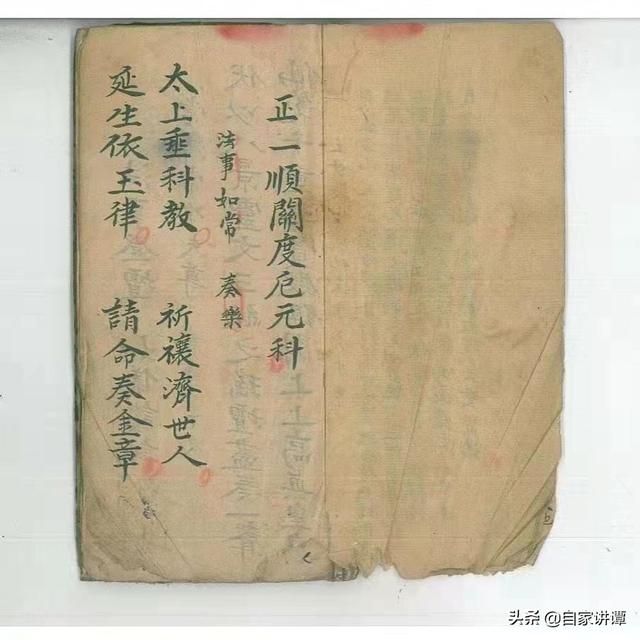 正一順關度厄元科
法事如常 奏樂
太上垂科教 祈禳濟世人
延生依玉律 請命奏金章
头条 @自家讲谭